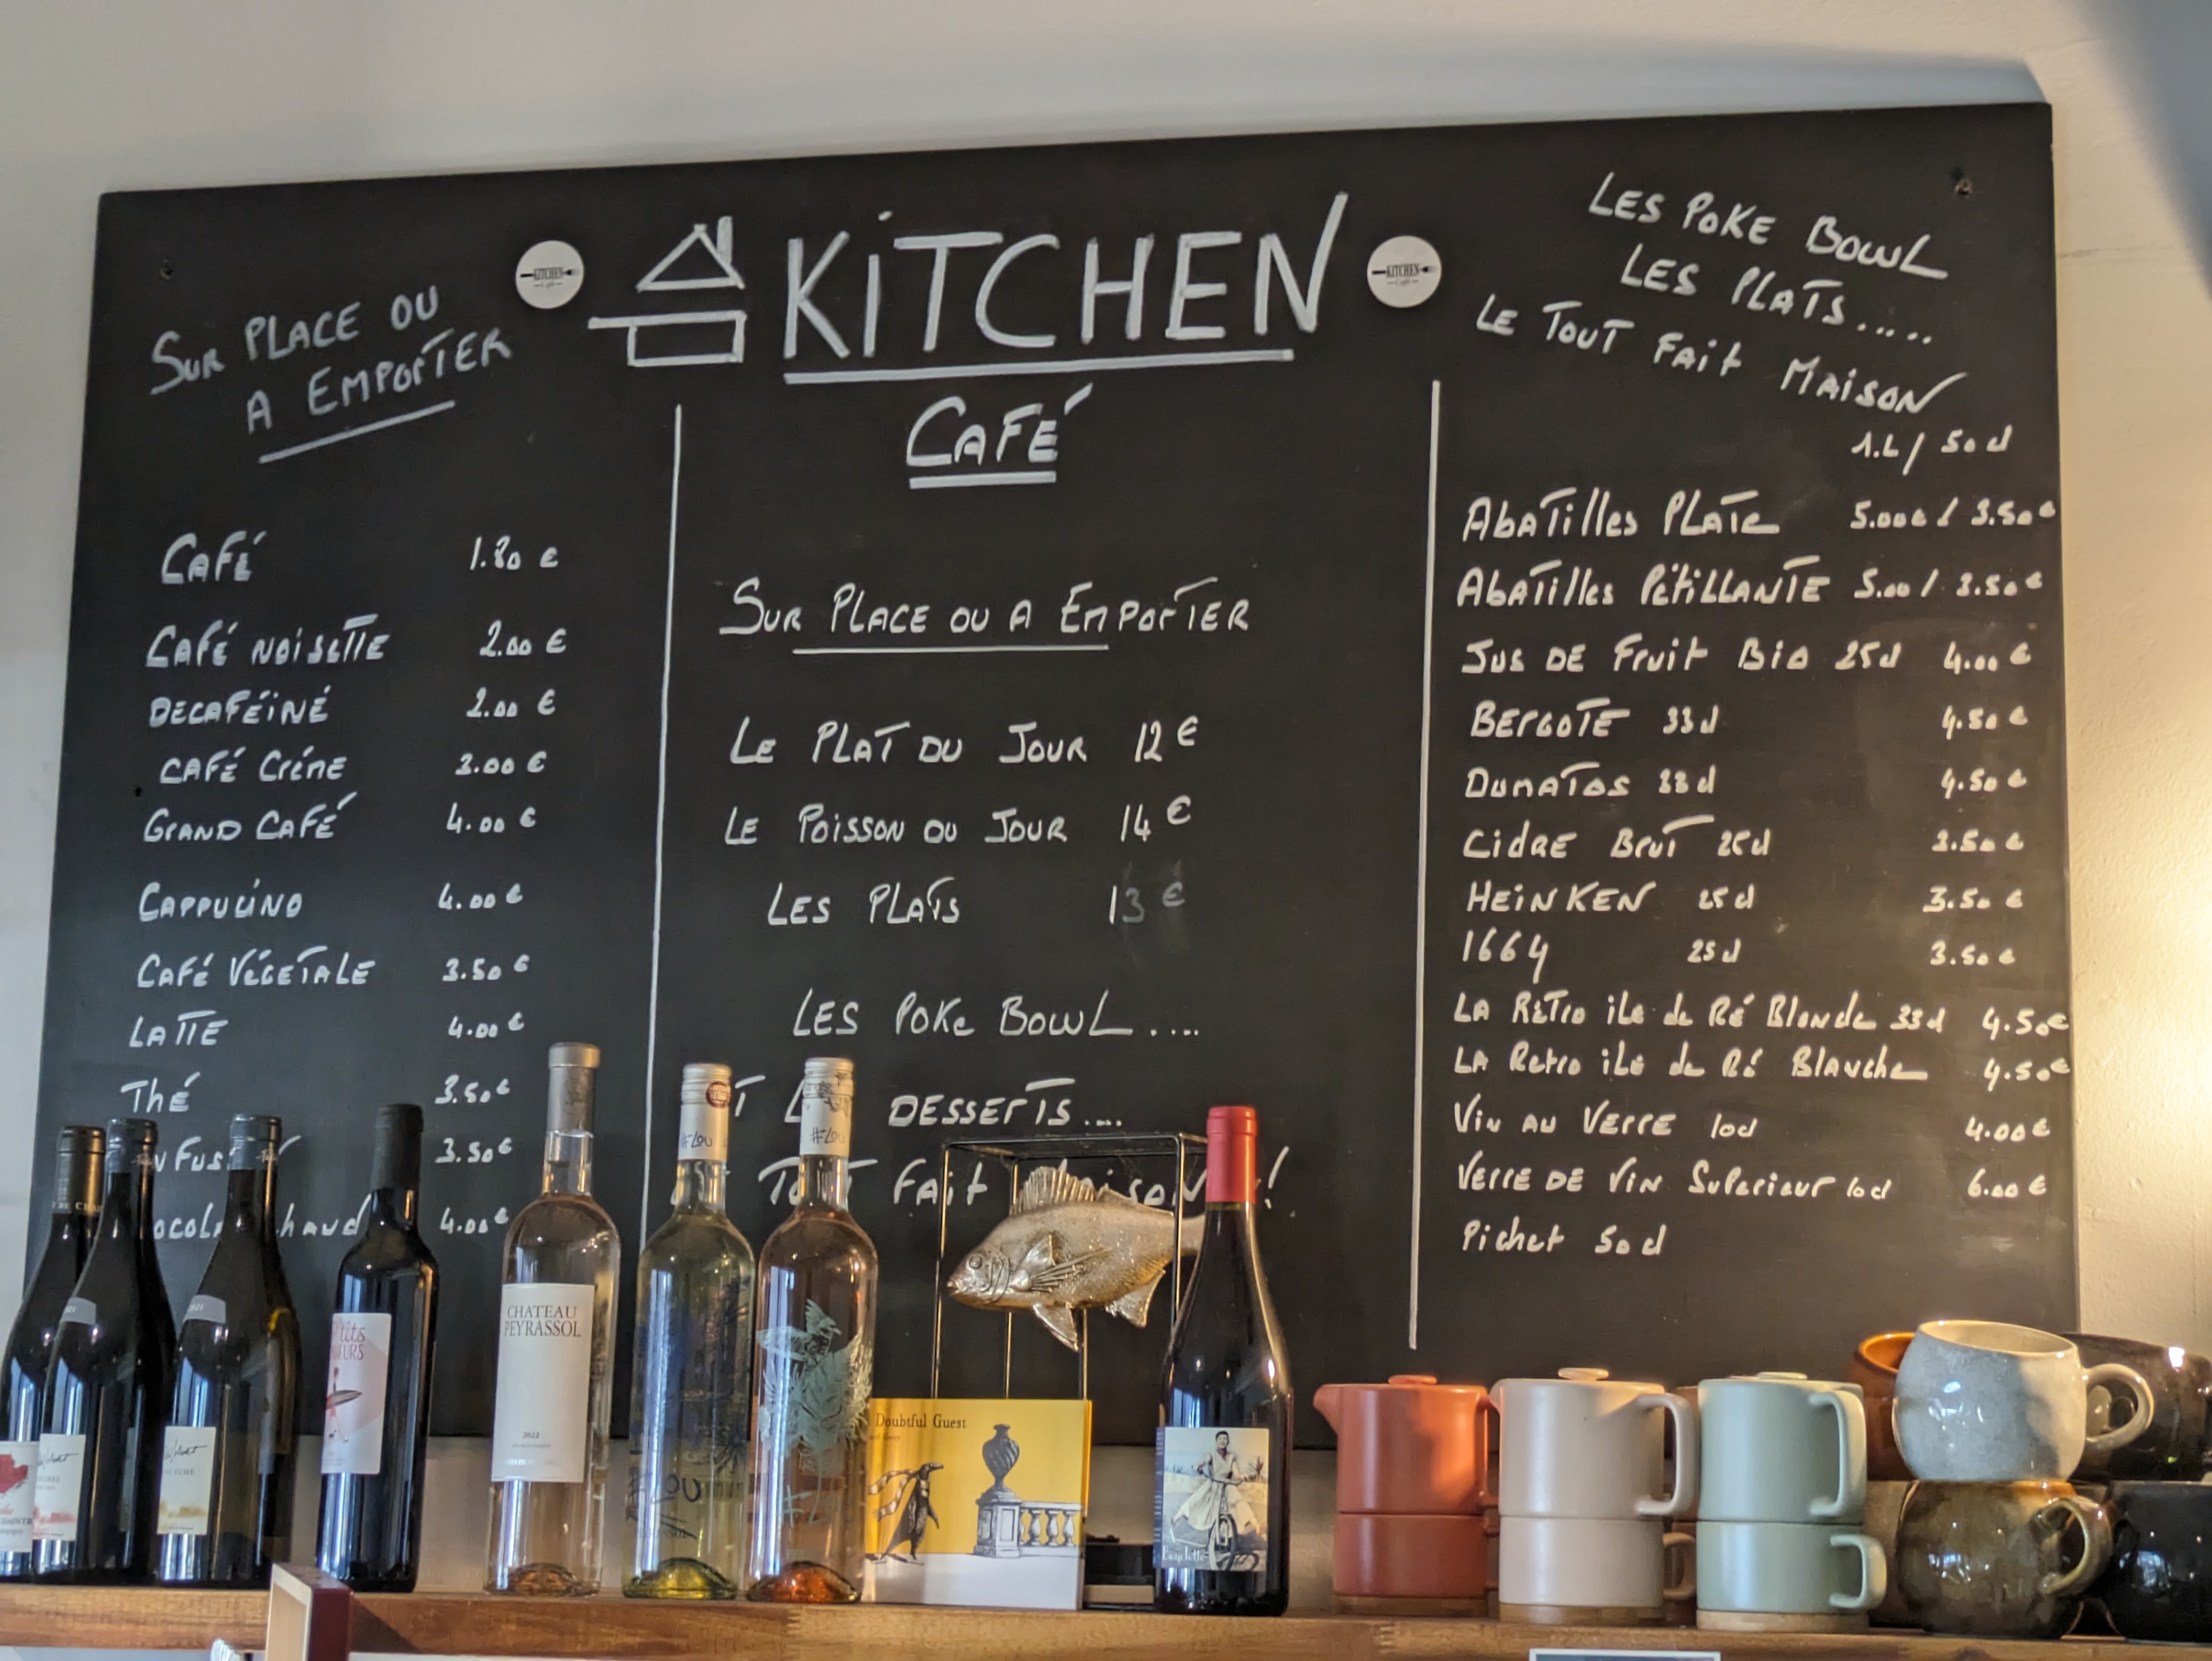 SUR PLACE OU
A EMPORTER
KITCHEN
Café
KiTCHEN
CAFÉ
KITCHEN
Café
LES POKE BOWL
LES PLATS.....
LE TOUT FAIT MAISON
CAFÉ 1.80 €
CAFÉ NOISETTE 2.00 €
DECAFÉINÉ 2.00 €
CAFÉ CRÉME 3.00 €
GRAND CAFÉ 4.00 €
CAPPUCINO 4.00 €
CAFÉ VÉGETALE 3.50 €
LATTE 4.00 €
THÉ 3.50 €
3.50 €
4.00 €
SUR PLACE OU A EMPORTER
LE PLAT DU JOUR 12 €
LE POISSON DU JOUR 14 €
LES PLATS 13 €
LES POKE BOWL....
DESSERTS....
FAIT !
1.L / 50 cl
ABATILLES PLATE 5.00€ / 3.50€
ABATILLES PÉTILLANTE 5.00 / 3.50€
JUS DE FRUIT BIO 25cl 4.00 €
BERGOTE 33cl 4.50 €
DUMATOS 33cl 4.50 €
CIDRE BRUT 25cl 3.50 €
HEINKEN 25cl 3.50 €
1664 25cl 3.50 €
LA RETRO ILE de RÉ Blonde 33cl 4.50€
LA RETRO ILE de RÉ Blanche 4.50€
VIN AU VERRE 10cl 4.00€
VERRE DE VIN SUPERIEUR 10cl 6.00 €
PICHET 50cl
#LOU
#LOU
CHATEAU
PEYRASSOL
2022
Doubtful Guest
Bicyclette